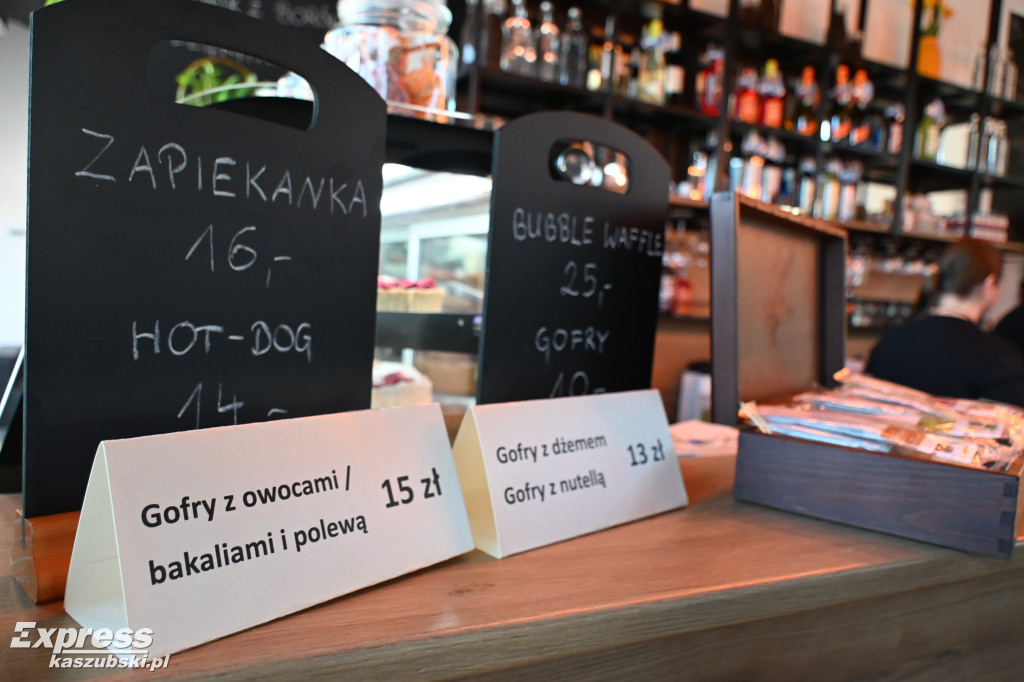 ZAPIEKANKA
16,-
HOT-DOG
14,-
BUBBLE WAFFLE
25,-
GOFRY
10,-
Gofry z owocami /
bakaliami i polewą
15 zł
Gofry z dżemem
Gofry z nutellą
13 zł
Express
kaszubski.pl